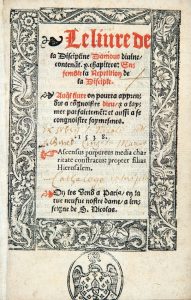 Le liure de
la Discipline Damour diuine
contenãt. x. chapitres: Ens
semble la Repetition de
la Disciple.
Auq̃l liure on pourra appren
dre a cõgnoistre dieu, & a lay
mer parfaictement: et aussi a se
congnoistre soymesmes.
1538.
Ascensus purpureus media cha
ritate constratus: propter filias
Hierusalem.
On les vend a Paris, en la
rue neufue nostre dame, a lens
seigne de S. Nicolas.